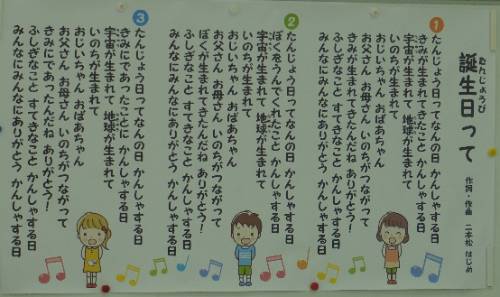 たんじょうび
誕生日って
作詞・作曲 二本松 はじめ
①
たんじょう日ってなんの日 かんしゃする日
きみが生まれてきたこと かんしゃする日
宇宙が生まれて 地球が生まれて
いのちが生まれて
おじいちゃん おばあちゃん
お父さん お母さん いのちがつながって
きみが生まれてきたんだね ありがとう!
ふしぎなこと すてきなこと かんしゃする日
みんなにみんなにありがとう かんしゃする日
②
たんじょう日ってなんの日 かんしゃする日
ぼくをうんでくれたこと かんしゃする日
宇宙が生まれて 地球が生まれて
いのちが生まれて
おじいちゃん おばあちゃん
お父さん お母さん いのちがつながって
ぼくが生まれてきたんだね ありがとう!
ふしぎなこと すてきなこと かんしゃする日
みんなにみんなにありがとう かんしゃする日
③
たんじょう日ってなんの日 かんしゃする日
きみにであったことに かんしゃする日
宇宙が生まれて 地球が生まれて
いのちが生まれて
おじいちゃん おばあちゃん
お父さん お母さん いのちがつながって
きみにであったんだね ありがとう!
ふしぎなこと すてきなこと かんしゃする日
みんなにみんなにありがとう かんしゃする日